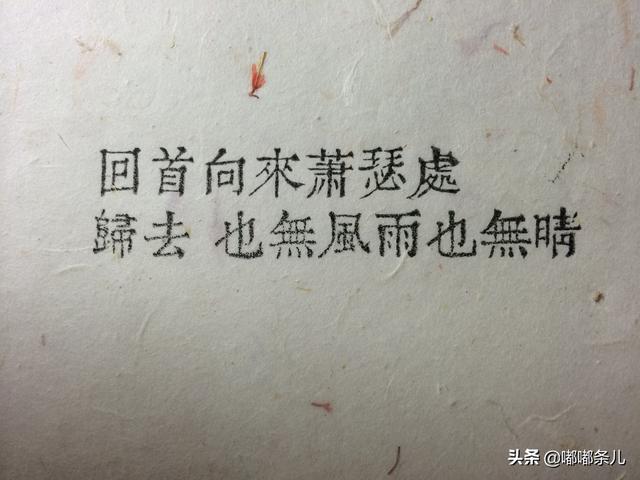 回首向來蕭瑟處
歸去 也無風雨也無晴
头条 @嘟嘟条儿